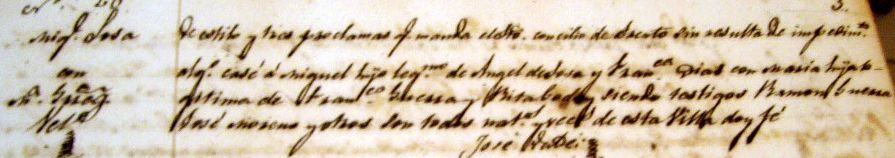 Mig.l Sosa
con
M.a Grac.a
de estilo y tres proclamas q. manda el Sto. concilio de Trento sin resulta de impedim.to
alg.o casé á Miguel hijo leg.mo de Angel de Sosa y Fran.ca Dias con Maria hija le-
gitima de Fran.co Guerra y Rita siendo testigos Ramon Guerra
José Moreno y otros son todos nat.s y vec.s de esta Villa doy fé
José